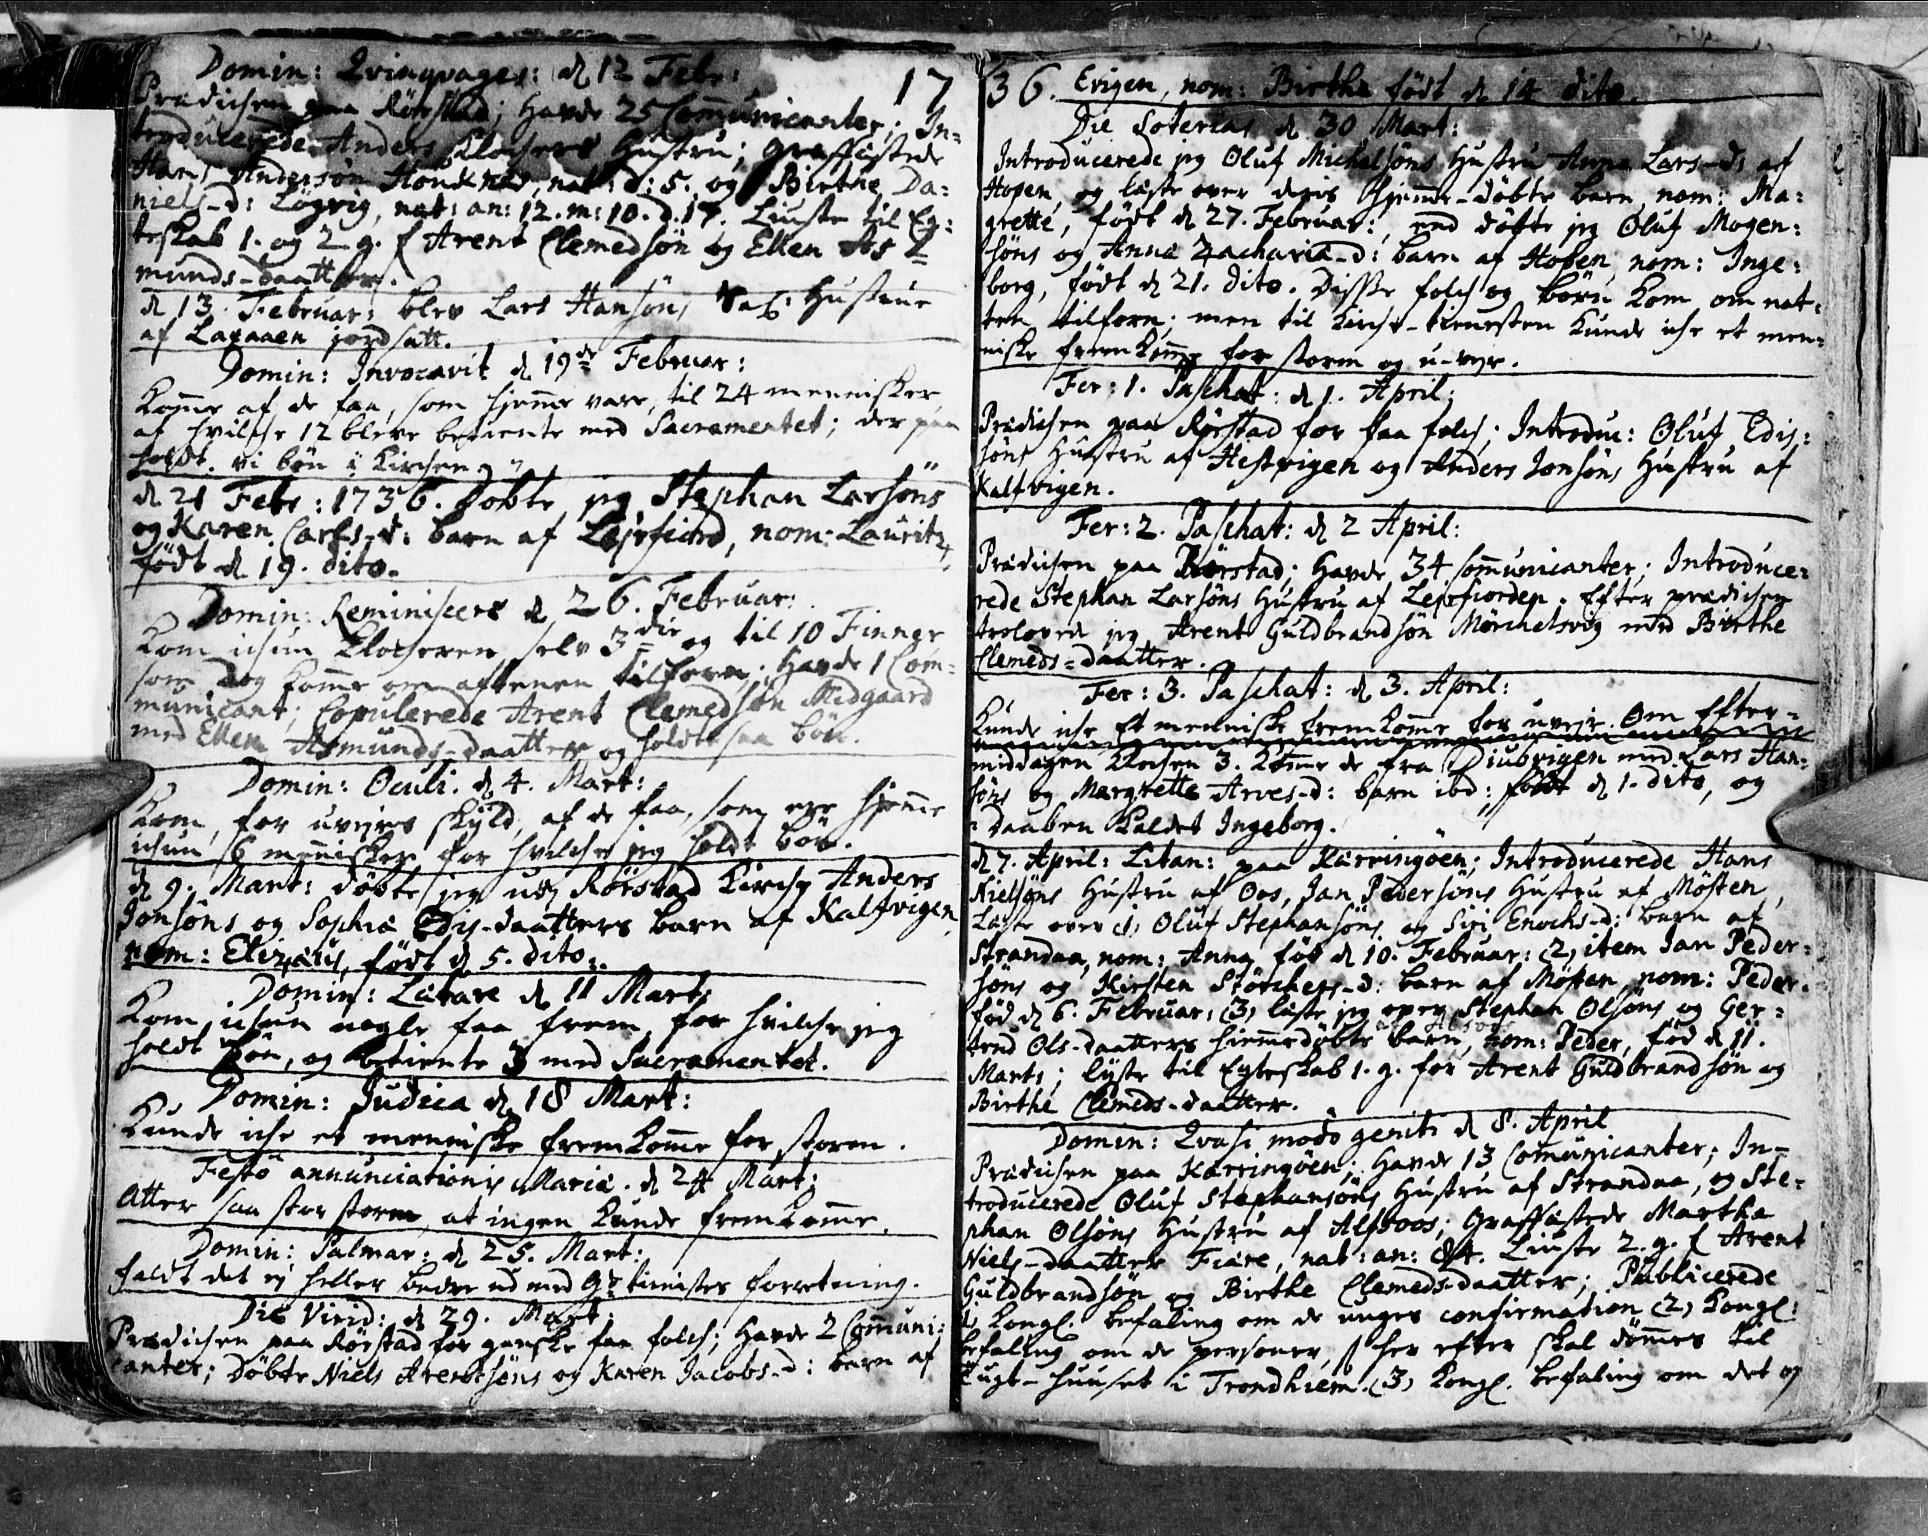 Domin: Qvinqvages: d 12 Febr: 17
Prædichen paa Rörstad; Havde 25 Communicanter; In-
troducerede Anders Klochers Hustru; Graffæstede
Hans Andersön nat: d: 5. og Birthe Da-
niels-d: Løgvig, nat: an: 12. m: 10. d. 17. Liuste til Eg-
teskab 1. og 2 g. f Arent Clemedsön og Ellen As-
munds-daatter.
d 13 Februar: blev Lars Hansöns Hustrue
af Laxaaen jordsatt.
Domin: Invocavit d 19de Februar:
Komme af de faa, som hjemme vare, til 24 mennisker
af hvilche 12 bleve betiente med Sacramentet; der paa
holdt vi bön i Kirchen.
d 21 Febr: 1736. Döbte jeg Stephan Larsöns
og Karen Carls-d: barn af Lejrfiord, nom: Lauritz,
födt d 19. dito.
Domin: Reminiscere d 26. Februar:
Kom ichun Klocheren selv 3die og til 10 Finner
som dog komme om aftenen tilforn; Havde 1 Com-
municant; Copulerede Arent Clemedsön Midgaard
med Ellen Asmunds-daatter og holdte saa bön.
Domin: Oculi. d 4. Mart:
Kom, for uvejrs skyld, af de faa, som ere hjemme
ichun 6 mennisker for hvilche jeg holdt bön.
d 9. Mart: döbte jeg udj Rörstad Kirche Anders
Jonsöns og Sophia Edis-daatters barn af Kalfvigen,
nom: Elizæus, födt d 5. dito.
Domin: Lætare d 11 Mart:
Kom ichun nogle faa frem, for hvilche jeg
holdt bön, og betiente 3 med Sacramentet.
Domin: Judica d 18 Mart:
Kunde iche et menniske fremkomme for storm.
Festo annunciationis Mariæ. d 24 Mart:
Atter saa stor storm, at ingen kunde fremkomme.
Domin: Palmar: d 25. Mart:
faldt det ej heller bedre ud med Gs tienistes forretning.
Die Virid: d 29. Mart:
Prædichen paa Rörstad for ganske faa folch; Havde 2 Communi-
canter; Döbte Niels Arentsöns og Karen Jacobs-d: barn af
36. Evigen, nom: Birthe födt d 14 dito.
Die Soterias d 30 Mart:
Introducerede jeg Oluf Michelsöns Hustru Anna Lars-d: af
Hopen, og læste over deris hjemme-döbte barn, nom: Ma-
grette, födt d 27. Februar:, end döbte jeg Oluf Mogen-
söns og Anna Zacharia-d: barn af Hopen, nom: Inge-
borg, födt d 21. dito. Disse folch og börn kom om nat-
ten tilforn; men til Kirche-tienesten kunde iche et men-
niske fremkomme for storm og u-vejr.
Fer: 1. Paschat: d 1. April:
Prædichen paa Rörstad for faa folch; Introduc: Oluf Edis-
söns Hustru af Hestvigen og Anders Jonsöns Hustru af
Kalfvigen.
Fer: 2. Paschat: d 2 April:
Prædichen paa Rörstad; Havde 34 Communicanter; Introduce-
rede Stephan Larsöns Hustru af Lejrfiorden. Efter prædichen
troloved jeg Arent Guldbrandsön Mörchelsvig med Birthe
Clemeds-daatter.
Fer: 3. Paschat: d 3. April:
Kunde iche et menniske fremkomme for uvejr. Om Efter-
middagen Klochen 3. komme de fra Diubvigen med Lars Han-
söns og Margrette Arves-d: barn ibd: födt d 1. dito, og
i daaben kaldet Ingeborg.
d 7. April: Litan: paa Kærringöen; Introducerede Hans
Nielsöns Hustru af Oos, Jan Pedersöns Hustru af Mösten,
Læste over 1) Oluf Stephansöns og Siri Enochs-d: barn af
Strandaa, nom: Anna föd d 10. Februar: (2) item Jan Peder-
söns og Kirsten Störchers-d: barn af Mösten, nom: Peder.
föd d 6. Februar, (3) læste jeg over Stephan Olsöns og Ger-
trud Ols-daatters hiemmedöbte barn, nom: Peder, föd d 11.
Marts; lyste til Egteskab 1. g. for Arent Guldbrandsön og
Birthe Clemeds-daatter.
Domin: Qvasi modo geniti d 8. April
Prædichen paa Kærringöen; Havde 13 Communicanter; In-
troducerede Oluf Stephansöns Hustru af Strandaa, og Ste-
phan Olsöns Hustru af Alsoos; Graffæstede Martha
Niels-daatter Fiære, nat: an: 84. Liuste 2. g. f Arent
Guldbrandsön og Birthe Clemeds-daatter; Publicerede
1) Kongl. befaling om de unges confirmation (2) Kongl:
befaling om de personer, s her efter skal dömmes til
Tugt-huuset i Trondhiem. (3) Kongl. befaling om det og